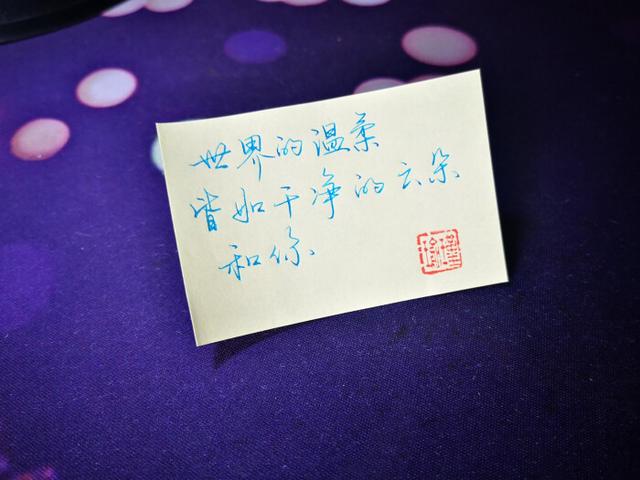 世界的温柔
皆如干净的云朵
和你